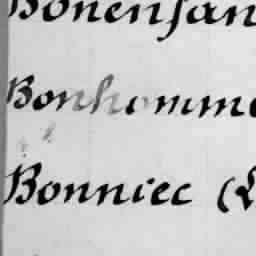 Bonenfan
Bonhomme
Bonniec (L